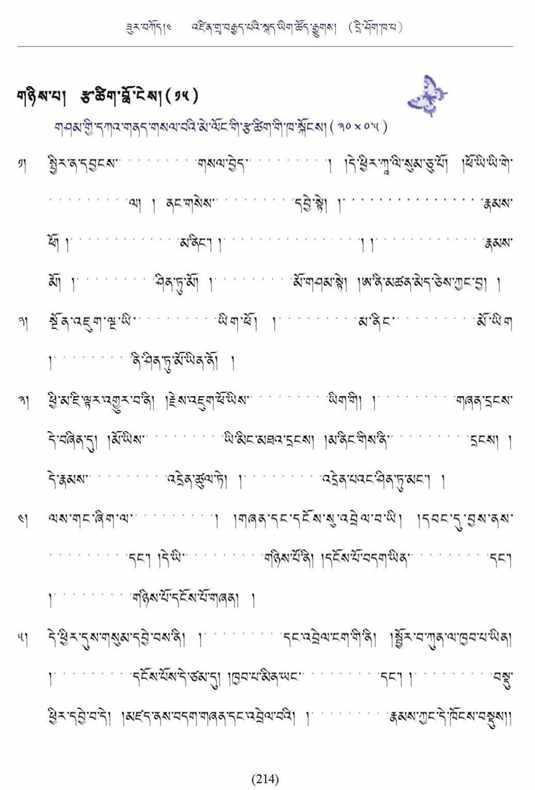 ཟུར་བཀོད།༤ འཛིན་གྲྭ་བརྒྱད་པའི་སྐད་ཡིག་ཚོད་རྒྱགས། (དྲི་ཤོག་ཁ་པ་)
གཉིས་པ། རྩ་ཚིག་བློ་ངེས།(༡༥)
གཤམ་གྱི་དཀའ་གནད་གསལ་བའི་མེ་ལོང་གི་རྩ་ཚིག་གི་ཁ་སྐོངས།(༣༠×༠.༥)
༡། སྤྱིར་ན་དབྱངས་········གསལ་བྱེད་·········། །དེ་ཕྱིར་ཀཱ་ལི་སུམ་ཅུ་པོ། །ཕོ་ཡི་ཡི་གེ་
·········ལ། །ནང་གསེས་·········དབྱེ་སྟེ། །················རྣམས་
ཕོ། །···········མ་ནིང་། །···············། །·············རྣམས་
མོ། །·········ཤིན་ཏུ་མོ། །·········མོ་གཤམ་སྟེ། །ཨ་ནི་མཚན་མེད་ཅེས་ཀྱང་བྱ། །
༢། སྔོན་འཇུག་ལྔ་ཡི་·········ཡིག་ཕོ། །·········མ་ནིང་·········མོ་ཡིག
།·········ནི་ཤིན་ཏུ་མོ་ཡིན་ནོ། །
༣། ཕྱི་མ་ཇི་ལྟར་འགྱུར་བ་ནི། །རྗེས་འཇུག་ཕོ་ཡིས་·········ཡིག་གི། །·········གཞན་དྲངས་
དེ་བཞིན་དུ། །མོ་ཡིས་·········ཡི་མིང་མཐའ་དྲངས། །མ་ནིང་གིས་ནི་·········དྲངས། །
དེ་རྣམས་·········འདྲེན་ཚུལ་ཏེ། །·········འདྲེན་པའང་ཤིན་ཏུ་མང་། །
༤། ལས་གང་ཞིག་ལ་·········། །གཞན་དང་དངོས་སུ་འབྲེལ་བ་ཡི། །དབང་དུ་བྱས་ནས་
·········དང་། །དེ་ཡི་·········གཉིས་པོ་ནི། །དངོས་པོ་བདག་ཡིན་·········དང་
།·········གཉིས་པོ་དངོས་པོ་གཞན། །
༥། དེ་ཕྱིར་དུས་གསུམ་དབྱེ་བས་ནི། །·········དང་འབྲེལ་ངག་གི་ནི། །སྦྱོར་བ་ཀུན་ལ་ཁྱབ་པ་ཡིན།
།·········དངོས་པོས་དེ་ཙམ་དུ། །ཁྱབ་པ་མིན་ཡང་·········དང་། །·········བསྡུ་
ཕྱིར་དབྱེ་བ་དེ། །མཛད་ནས་བདག་གཞན་དང་འབྲེལ་བའི། །·········རྣམས་ཀྱང་དེ་ཁོངས་བསྡུས།།
(214)